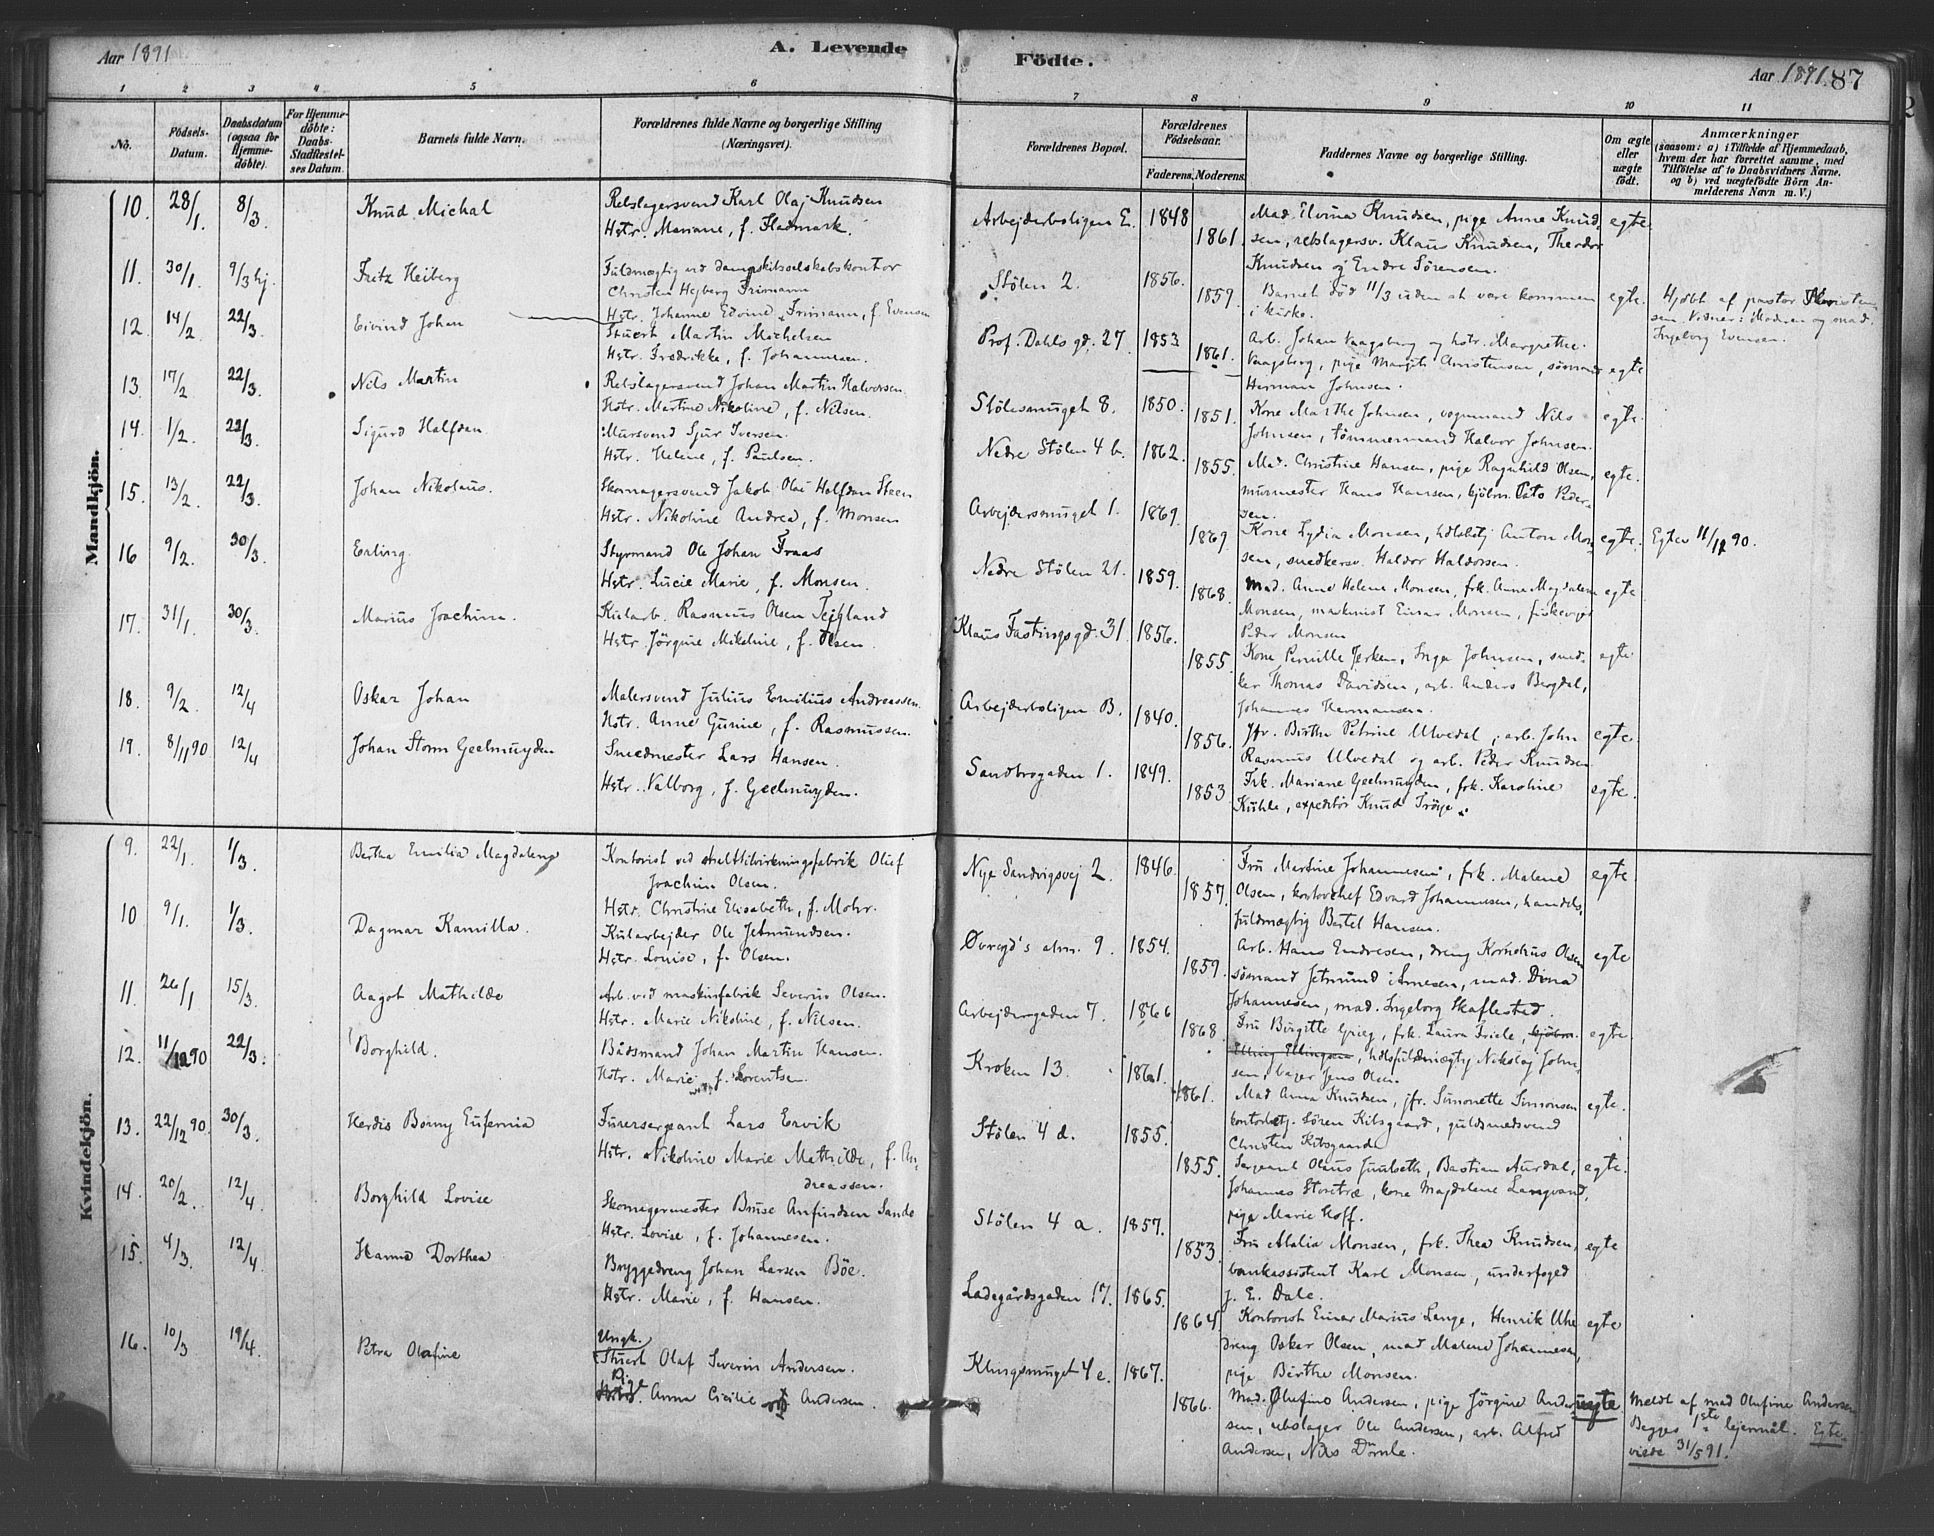 Aar 1891
A. Levende
Födte.
Aar 1891. 87
1 2 3 4 5 6 7 8 9 10 11
No.
Födsels-Datum.
Daabsdatum (ogsaa for Hjemme-döbte).
For Hjemme-döbte: Daabs-Stadfæstel-ses Datum.
Barnets fulde Navn.
Forældrenes fulde Navne og borgerlige Stilling (Næringsvei).
Forældrenes Bopæl.
Forældrenes Födselsaar.
Faderens. Moderens.
Faddernes Navne og borgerlige Stilling.
Om ægte eller uægte födt.
Anmærkninger
(saasom: a) i Tilfælde af Hjemmedaab,
hvem der har forrettet samme, med
Tilföielse af to Daabsvidners Navne.
og b) ved uægtefödte Börn An-
melderens Navn m. V.)
Mandkjön.
10. 28/1 8/3 Knud Michal
Rebslagersvend Karl Olaj Knudsen
Hstr. Mariane, f. Fladmark.
Arbejderboligen E. 1848 1861.
Mad. Elvina Knudsen, pige Anne Knud-
sen, rebslagersv. Klaus Knudsen, Theodor
Knudsen og Endre Sörensen.
egte.
11. 30/1. 9/3 hj. Fritz Heiberg
Fuldmægtig ved dampskibsselskabskontor
Christen Hejberg Frimann
Hstr. Johanne Edvine Frimann, f. Evensen
Stølen 2. 1856. 1859.
Barnet död 11/3 uden at være kommen
i kirke.
egte.
Hjdbt af pastor
sen. Vidner: Moderen og mad.
Ingeborg Evensen.
12. 14/2. 22/3. Eivind Johan
Stuert Martin Michelsen
Hstr. Fredrikke, f. Johannesen.
Prof. Dahls gd. 27. 1853 1861.
Arb. Johan Vaagsberg og hstr. Margrethe
Vaagsberg, pige Margit Christensen, sömand
Herman Johnsen.
egte
13. 17/2 22/3 Nils Martin
Rebslagersvend Johan Martin Halvorsen
Hstr. Martine Nikoline, f. Nilsen.
Stølesmuget 8. 1850. 1851.
Kone Marthe Johnsen, vognmand Nils
Johnsen, tömmermand Halvor Johnsen.
egte.
14. 1/2. 22/3. Sigurd Halfdan
Mursvend Sjur Iversen.
Hstr. Helene, f. Paulsen.
Nedre Stølen 4 b. 1862. 1855.
Mad. Christine Hansen, pige Ragnhild Olsen,
murmester Hans Hansen, kjöbm. Peder-
sen.
egte.
15. 13/2. 22/3. Johan Nikolaus.
Skomagersvend Jakob Olai Halfdan Steen
Hstr. Nikoline Andrea, f. Monsen
Arbejdersmuget 1. 1869. 1869.
Kone Lydia Monsen, Anton Mon-
sen, snedkersv. Haldor Haldorsen.
egte.
Egtev 11/12 90.
16 9/2. 30/3. Erling.
Styrmand Ole Johan Fraas
Hstr. Lucie Marie, f. Monsen.
Nedre Stølen 21. 1859. 1868.
Mad. Anne Helene Monsen, frk. Anne Magdalene
Monsen, maskinist Einar Monsen, fiskeexp.
Peder Monsen
egte.
17. 31/1. 30/3. Marius Joachim.
Kularb. Rasmus Olsen Tejgland
Hstr. Jörgine Mikoline, f. Olsen.
Klaus Fastingsgd. 31. 1856. 1855.
Kone Pernille Jerken, Inga Johnsen, sned-
ker Thomas Davidsen, arb. Anders Bergdal,
Johannes Hermansen.
egte.
18. 9/2. 12/4 Oskar Johan
Malersvend Julius Emilius Andreassen.
Hstr. Anne Gurine, f. Rasmussen.
Arbejderboligen B. 1840. 1856.
Jfr. Birthe Petrine Ulvedal, arb. John
Rasmus Ulvedal og arb. Peder Knudsen
egte.
19. 8/11 90 12/4 Johan Storm Geelmuyden
Smedmester Lars Hansen.
Hstr. Valborg, f. Geelmuyden.
Sandbrogaden 1. 1849. 1853
Frk. Mariane Geelmuyden, frk. Karoline
Kuhle, expeditör Knud Tröye.
egte.
Kvindekjön.
9. 22/1. 1/3. Bertha Emilia Magdalena
Kontorist ved Oluf
Joachim Olsen.
Hstr. Christine Elisabeth, f. Mohr.
Nye Sandvigsvej 2. 1846. 1857.
Fru Martine Johannesen, frk. Malene
Olsen, kontorchef Edvard Johannesen, handels-
fuldmægtig Bertel Hansen.
egte.
10 9/1. 1/3. Dagmar Kamilla.
Kularbejder Ole Jetmundsen.
Hstr. Louise, f. Olsen.
Øvregd's alm. 9. 1854. 1859.
Arb. Hans Endresen, dreng Kornelius Olsen
sömand Jetmund Arnesen, mad. Dina
Johannesen, mad. Ingeborg Skaflestad.
egte
11. 26/1 15/3. Aagot Mathilde
Arb. ved maskinfabrik Severin Olsen.
Hstr. Marie Nikoline, f. Nilsen.
Arbejdergaden 7. 1866 1868.
Fru Birgitte Grieg, frk. Laura Friele, kjöbm.
Elling Ellingsen, hdlsfuldmægtig Nikolaj John-
sen, bager Jens Olsen.
egte.
12. 11/12 90 22/3. Borghild.
Bådsmand Johan Martin Hansen.
Hstr. Marie f. Lorentsen.
Kroken 13. 1861. 1861.
Mad Anna Knudsen, jfr. Simonette Simonsen
kontorbetj. Sören Kibsgaard, guldsmedsvend
Christen Kibsgaard
egte.
13. 22/12 90. 30/3. Herdis Borny Eufemia
Furersergeant Lars Ervik
Hstr. Nikoline Marie Mathilde, f. An-
dreassen.
Stølen 4 d. 1855. 1855.
Sergeant Olaus Juulseth, Bastian Aurdal,
Johannes Storetræ, kone Magdalene Langvand,
pige Marie Hoff.
egte.
14. 20/2. 12/4. Borghild Lovise
Skomagermester Bruse Anfindsen Sande
Hstr. Lovise, f. Johannesen.
Stølen 4 a. 1857. 1853.
Fru Malia Monsen, frk. Thea Knudsen,
bankassistent Karl Monsen, underfoged
J. E. Dale.
egte
15. 4/3. 12/4. Hanna Dorthea
Bryggedreng Johan Larsen Böe.
Hstr. Marie, f. Hansen.
Ladegårdsgaden 17. 1865. 1864.
Kontorist Einar Marius Lange, Henrik Uhe
dreng Oskar Olsen, mad Malene Johannesen,
pige Birthe Monsen.
egte
16. 10/3 19/4. Petra Olafine
Ungk.
Stuert Olaf Severin Andersen.
Pige
Anna Cicilie Andersen.
Klingesmuget 4 e. 1867. 1866.
Mad. Olufine Andersen, pige Jörgine Ander-
sen, rebslager Ole Andersen, arb. Alfred
Andersen, Nils Dömle.
uegte
Meldt af mad Olufine Andersen
Begges 1ste lejermål. Egte-
viede 31/5 91.